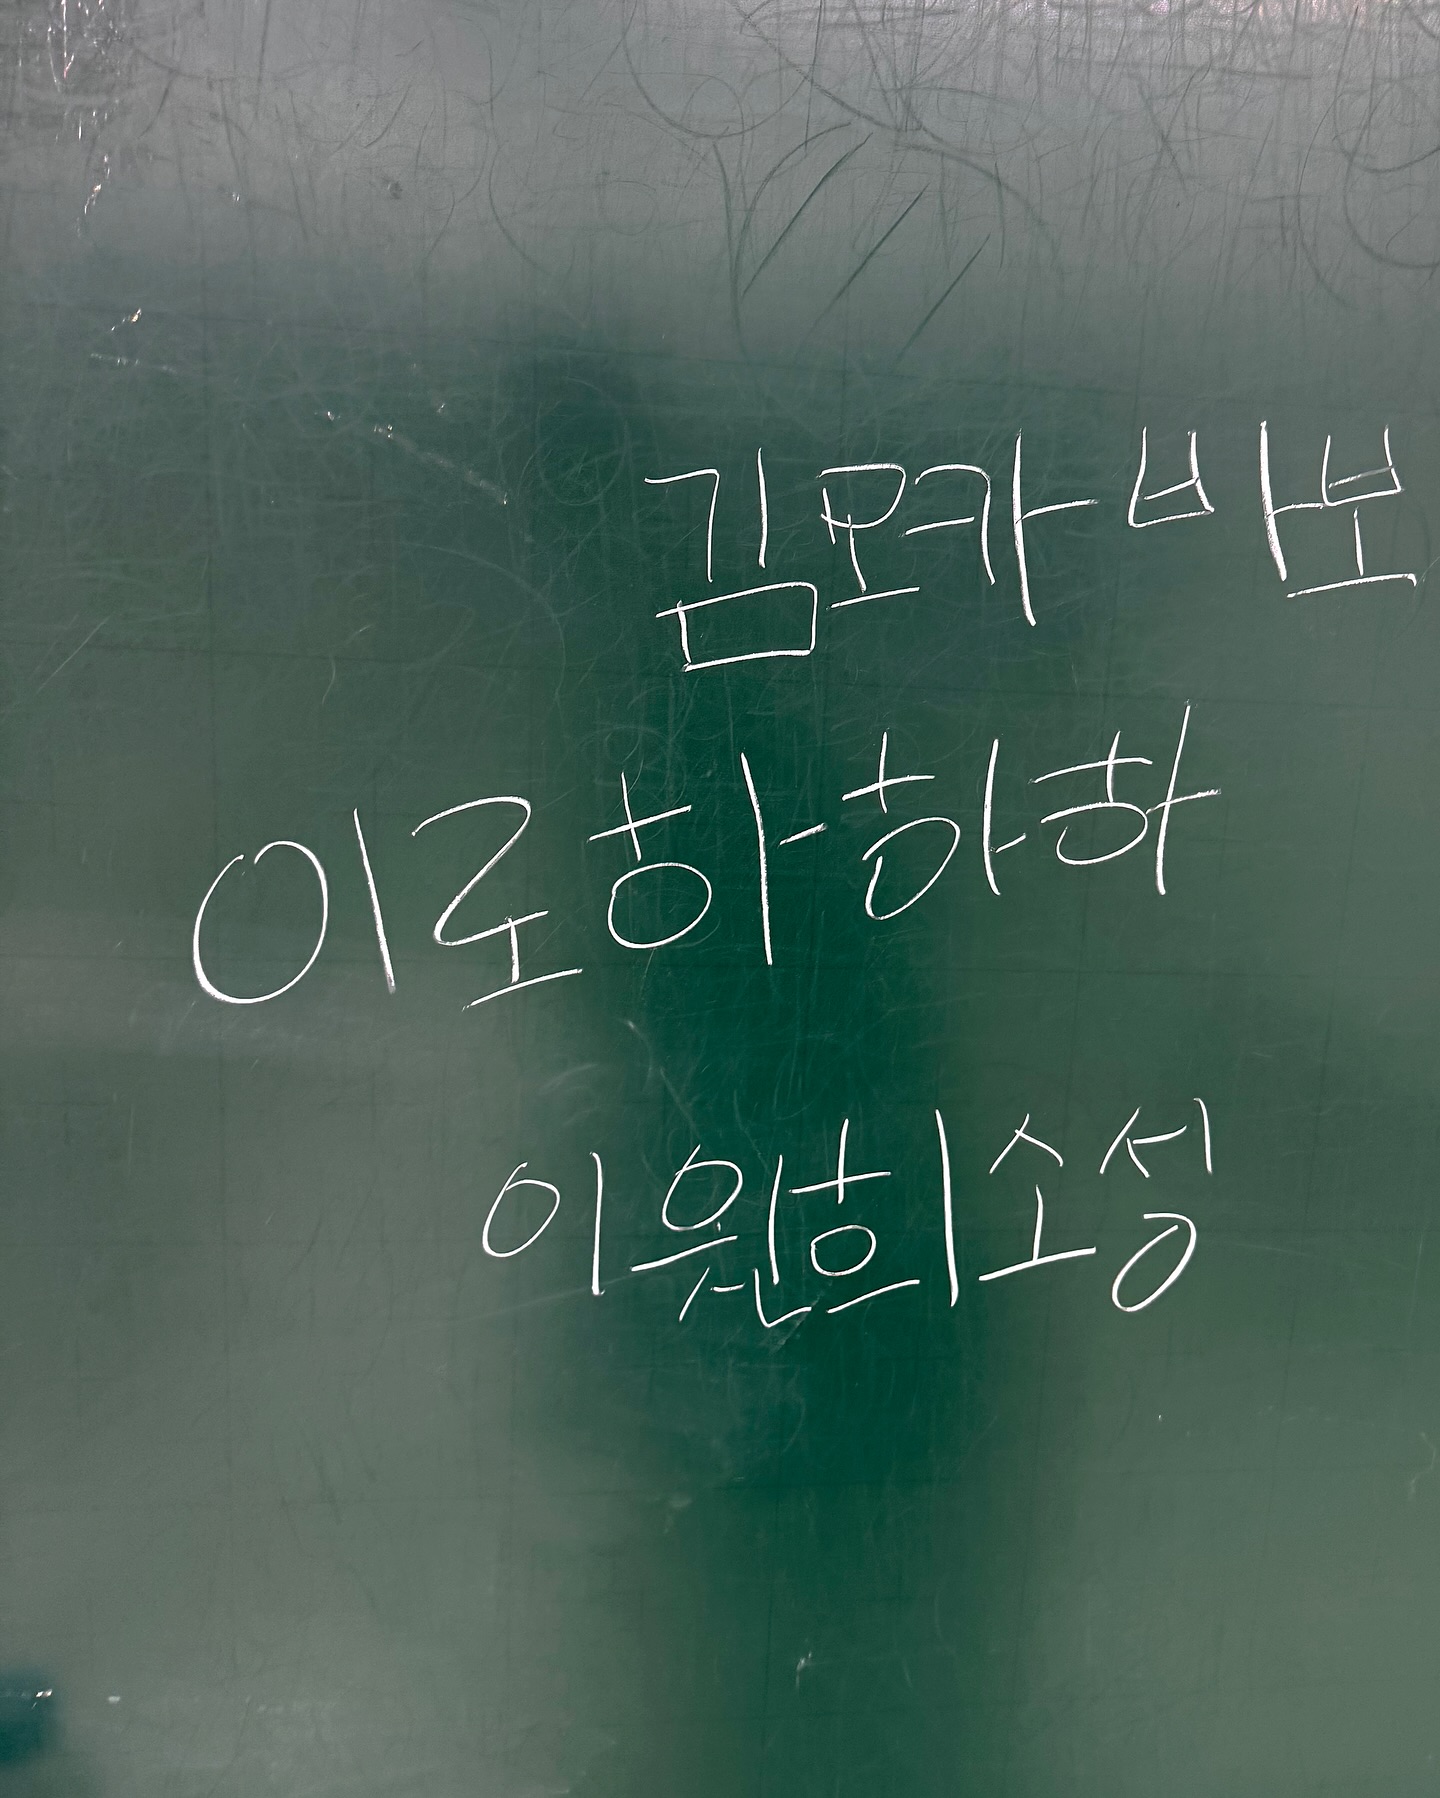 김모카 바보
이로하하하
이원희 소성